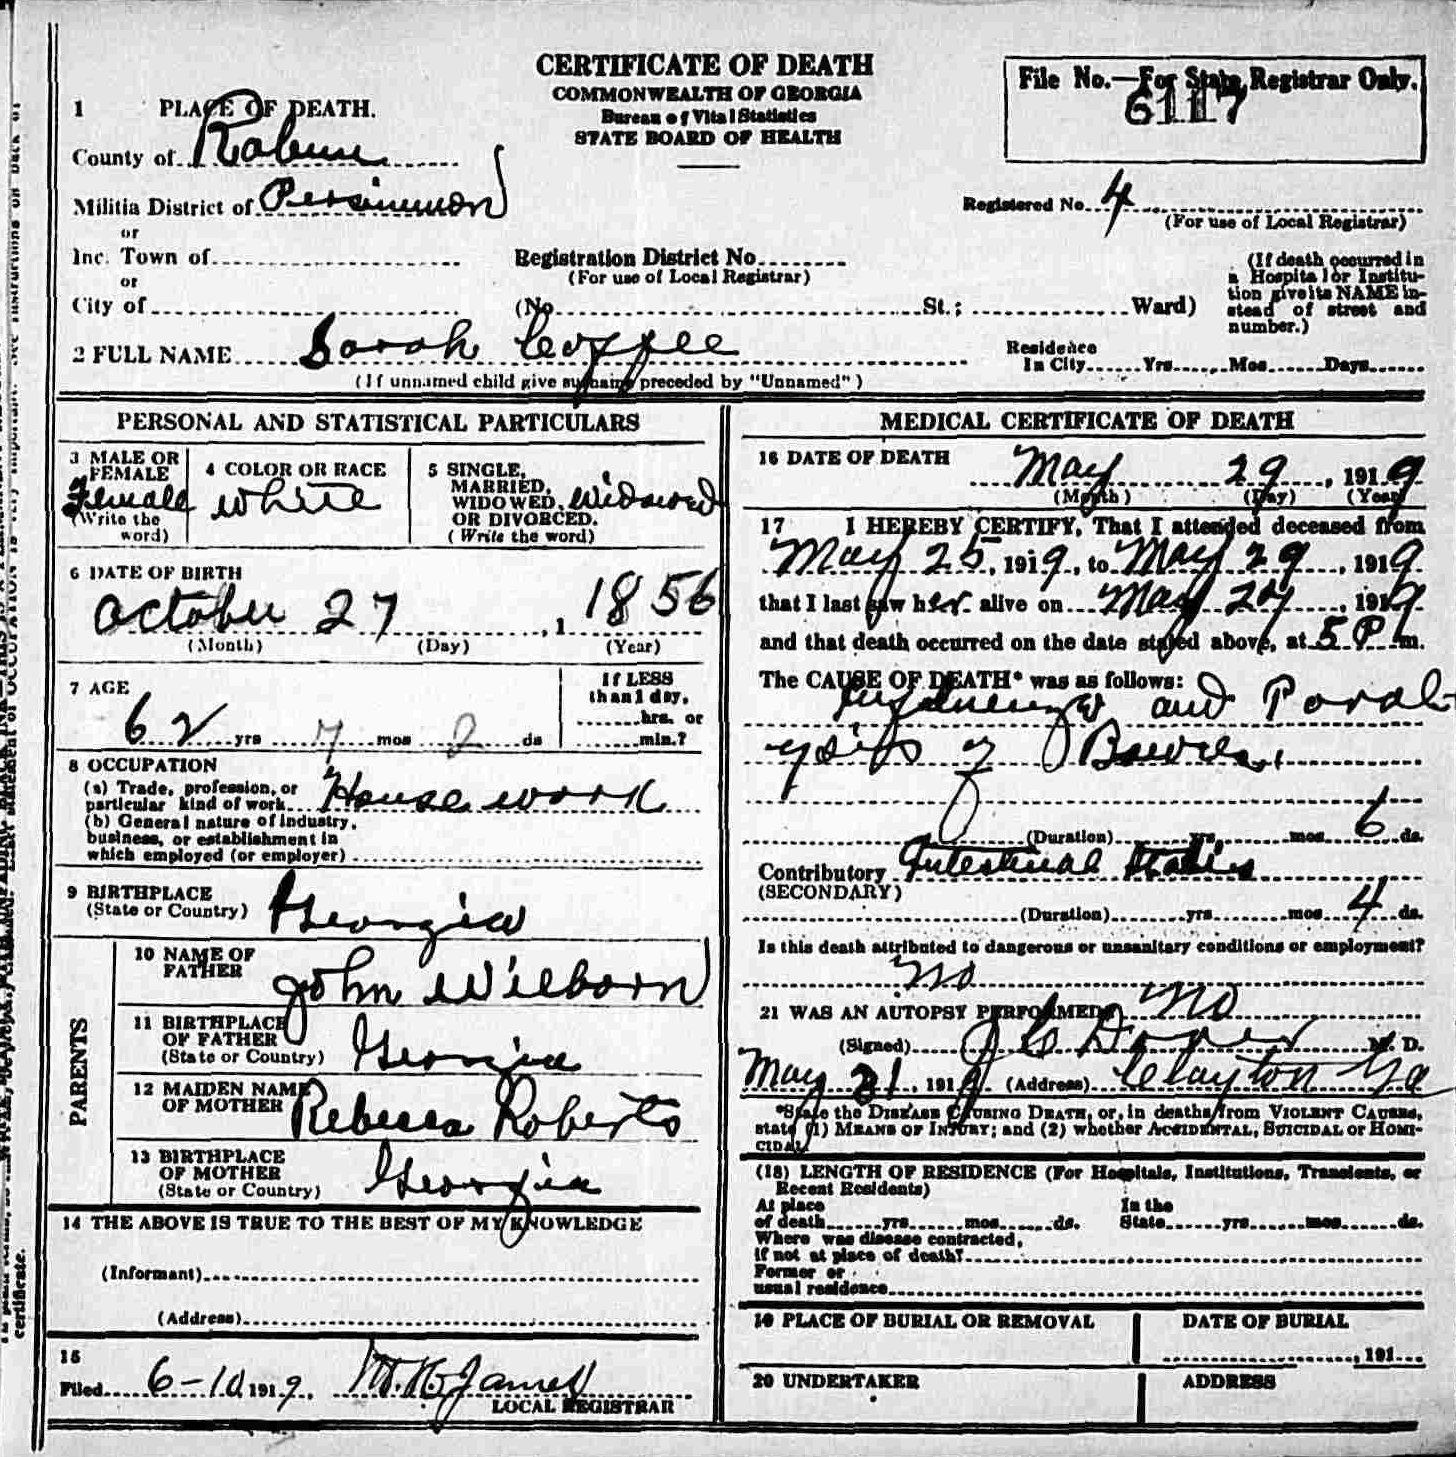 CERTIFICATE OF DEATH
COMMONWEALTH OF GEORGIA
Bureau of Vital Statistics
STATE BOARD OF HEALTH
File No.—For State Registrar Only.
6117
1 PLACE OF DEATH.
County of Rabun
Militia District of Persimmon
or
Inc. Town of
or
City of
Registration District No
(For use of Local Registrar)
(No St.; Ward)
Registered No. 4
(For use of Local Registrar)
(If death occurred in
a Hospital or Institu-
tion give its NAME in-
stead of street and
number.)
2 FULL NAME Sarah Coffee
(If unnamed child give surname preceded by "Unnamed")
Residence
In City Yrs Mos Days
PERSONAL AND STATISTICAL PARTICULARS
3 MALE OR
FEMALE
Female
(Write the
word)
4 COLOR OR RACE
white
5 SINGLE,
MARRIED,
WIDOWED, widowed
OR DIVORCED.
(Write the word)
6 DATE OF BIRTH
October 27, 1 1856
(Month) (Day) (Year)
7 AGE
62 yrs 7 mos 2 ds
If LESS
than 1 day,
hrs. or
min.?
8 OCCUPATION
(a) Trade, profession, or
particular kind of work House work
(b) General nature of industry,
business, or establishment in
which employed (or employer)
9 BIRTHPLACE
(State or Country) Georgia
PARENTS
10 NAME OF
FATHER John Wilborn
11 BIRTHPLACE
OF FATHER
(State or Country) Georgia
12 MAIDEN NAME
OF MOTHER Rebecca Roberts
13 BIRTHPLACE
OF MOTHER
(State or Country) Georgia
14 THE ABOVE IS TRUE TO THE BEST OF MY KNOWLEDGE
(Informant)
(Address)
15
Filed 6-10 1919, M. R. James
LOCAL REGISTRAR
MEDICAL CERTIFICATE OF DEATH
16 DATE OF DEATH
May 29, 1919
(Month) (Day) (Year)
17 I HEREBY CERTIFY, That I attended deceased from
May 25, 1919, to May 29, 1919
that I last saw her alive on May 27, 1919
and that death occurred on the date stated above, at 5 P m.
The CAUSE OF DEATH* was as follows:
Influenza and Paral-
ysis of Bowels.
(Duration) yrs mos 6 ds.
Contributory Intestinal Stasis
(SECONDARY)
(Duration) yrs mos 4 ds.
Is this death attributed to dangerous or unsanitary conditions or employment?
No
21 WAS AN AUTOPSY PERFORMED No
(Signed) J C Dover M. D.
May 31, 1919 (Address) Clayton Ga
*State the DISEASE CAUSING DEATH, or, in deaths from VIOLENT CAUSES,
state (1) MEANS OF INJURY; and (2) whether ACCIDENTAL, SUICIDAL or HOMI-
CIDAL
(18) LENGTH OF RESIDENCE (For Hospitals, Institutions, Transients, or
Recent Residents)
At place In the
of death yrs mos ds. State yrs mos ds.
Where was disease contracted,
if not at place of death?
Former or
usual residence
19 PLACE OF BURIAL OR REMOVAL
DATE OF BURIAL
, 191
20 UNDERTAKER
ADDRESS
certificate.